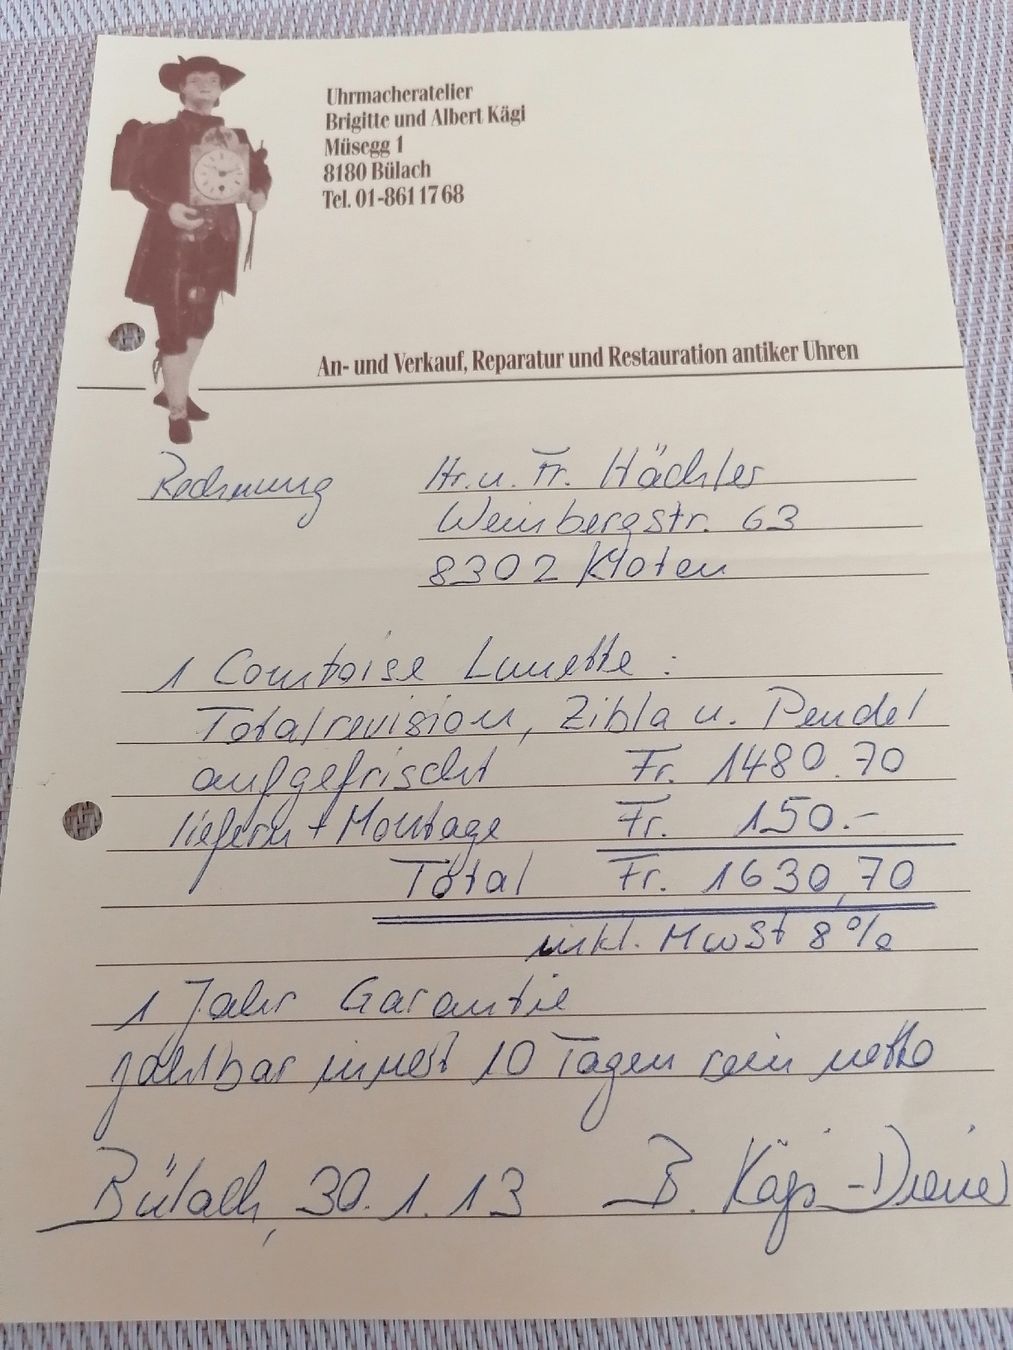 Uhrmacheratelier
Brigitte und Albert Kägi
Müsegg 1
8180 Bülach
Tel. 01-861 17 68
An- und Verkauf, Reparatur und Restauration antiker Uhren
Rechnung
Hr. u. Fr. Hächler
Weinbergstr. 63
8302 Kloten
1 Comtoise Lunette :
Totalrevision, Zibla u. Pendel
aufgefrischt Fr. 1480.70
liefern + Montage Fr. 150.-
Total Fr. 1630,70
inkl. MwSt 8%
1 Jahr Garantie
zahlbar innert 10 Tagen rein netto
Bülach, 30. 1. 13 B. Kägi-Diener